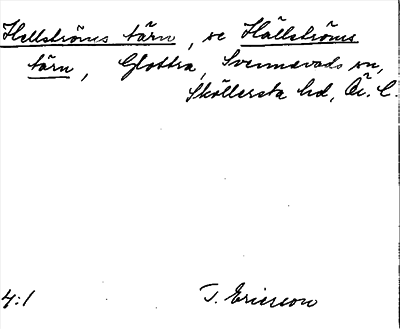 Hellströms tärn, se Hällströms
tärn, Glottra, Svennevads sn,
Sköllersta hd, Ör. l.
4:1 T. Ericsson